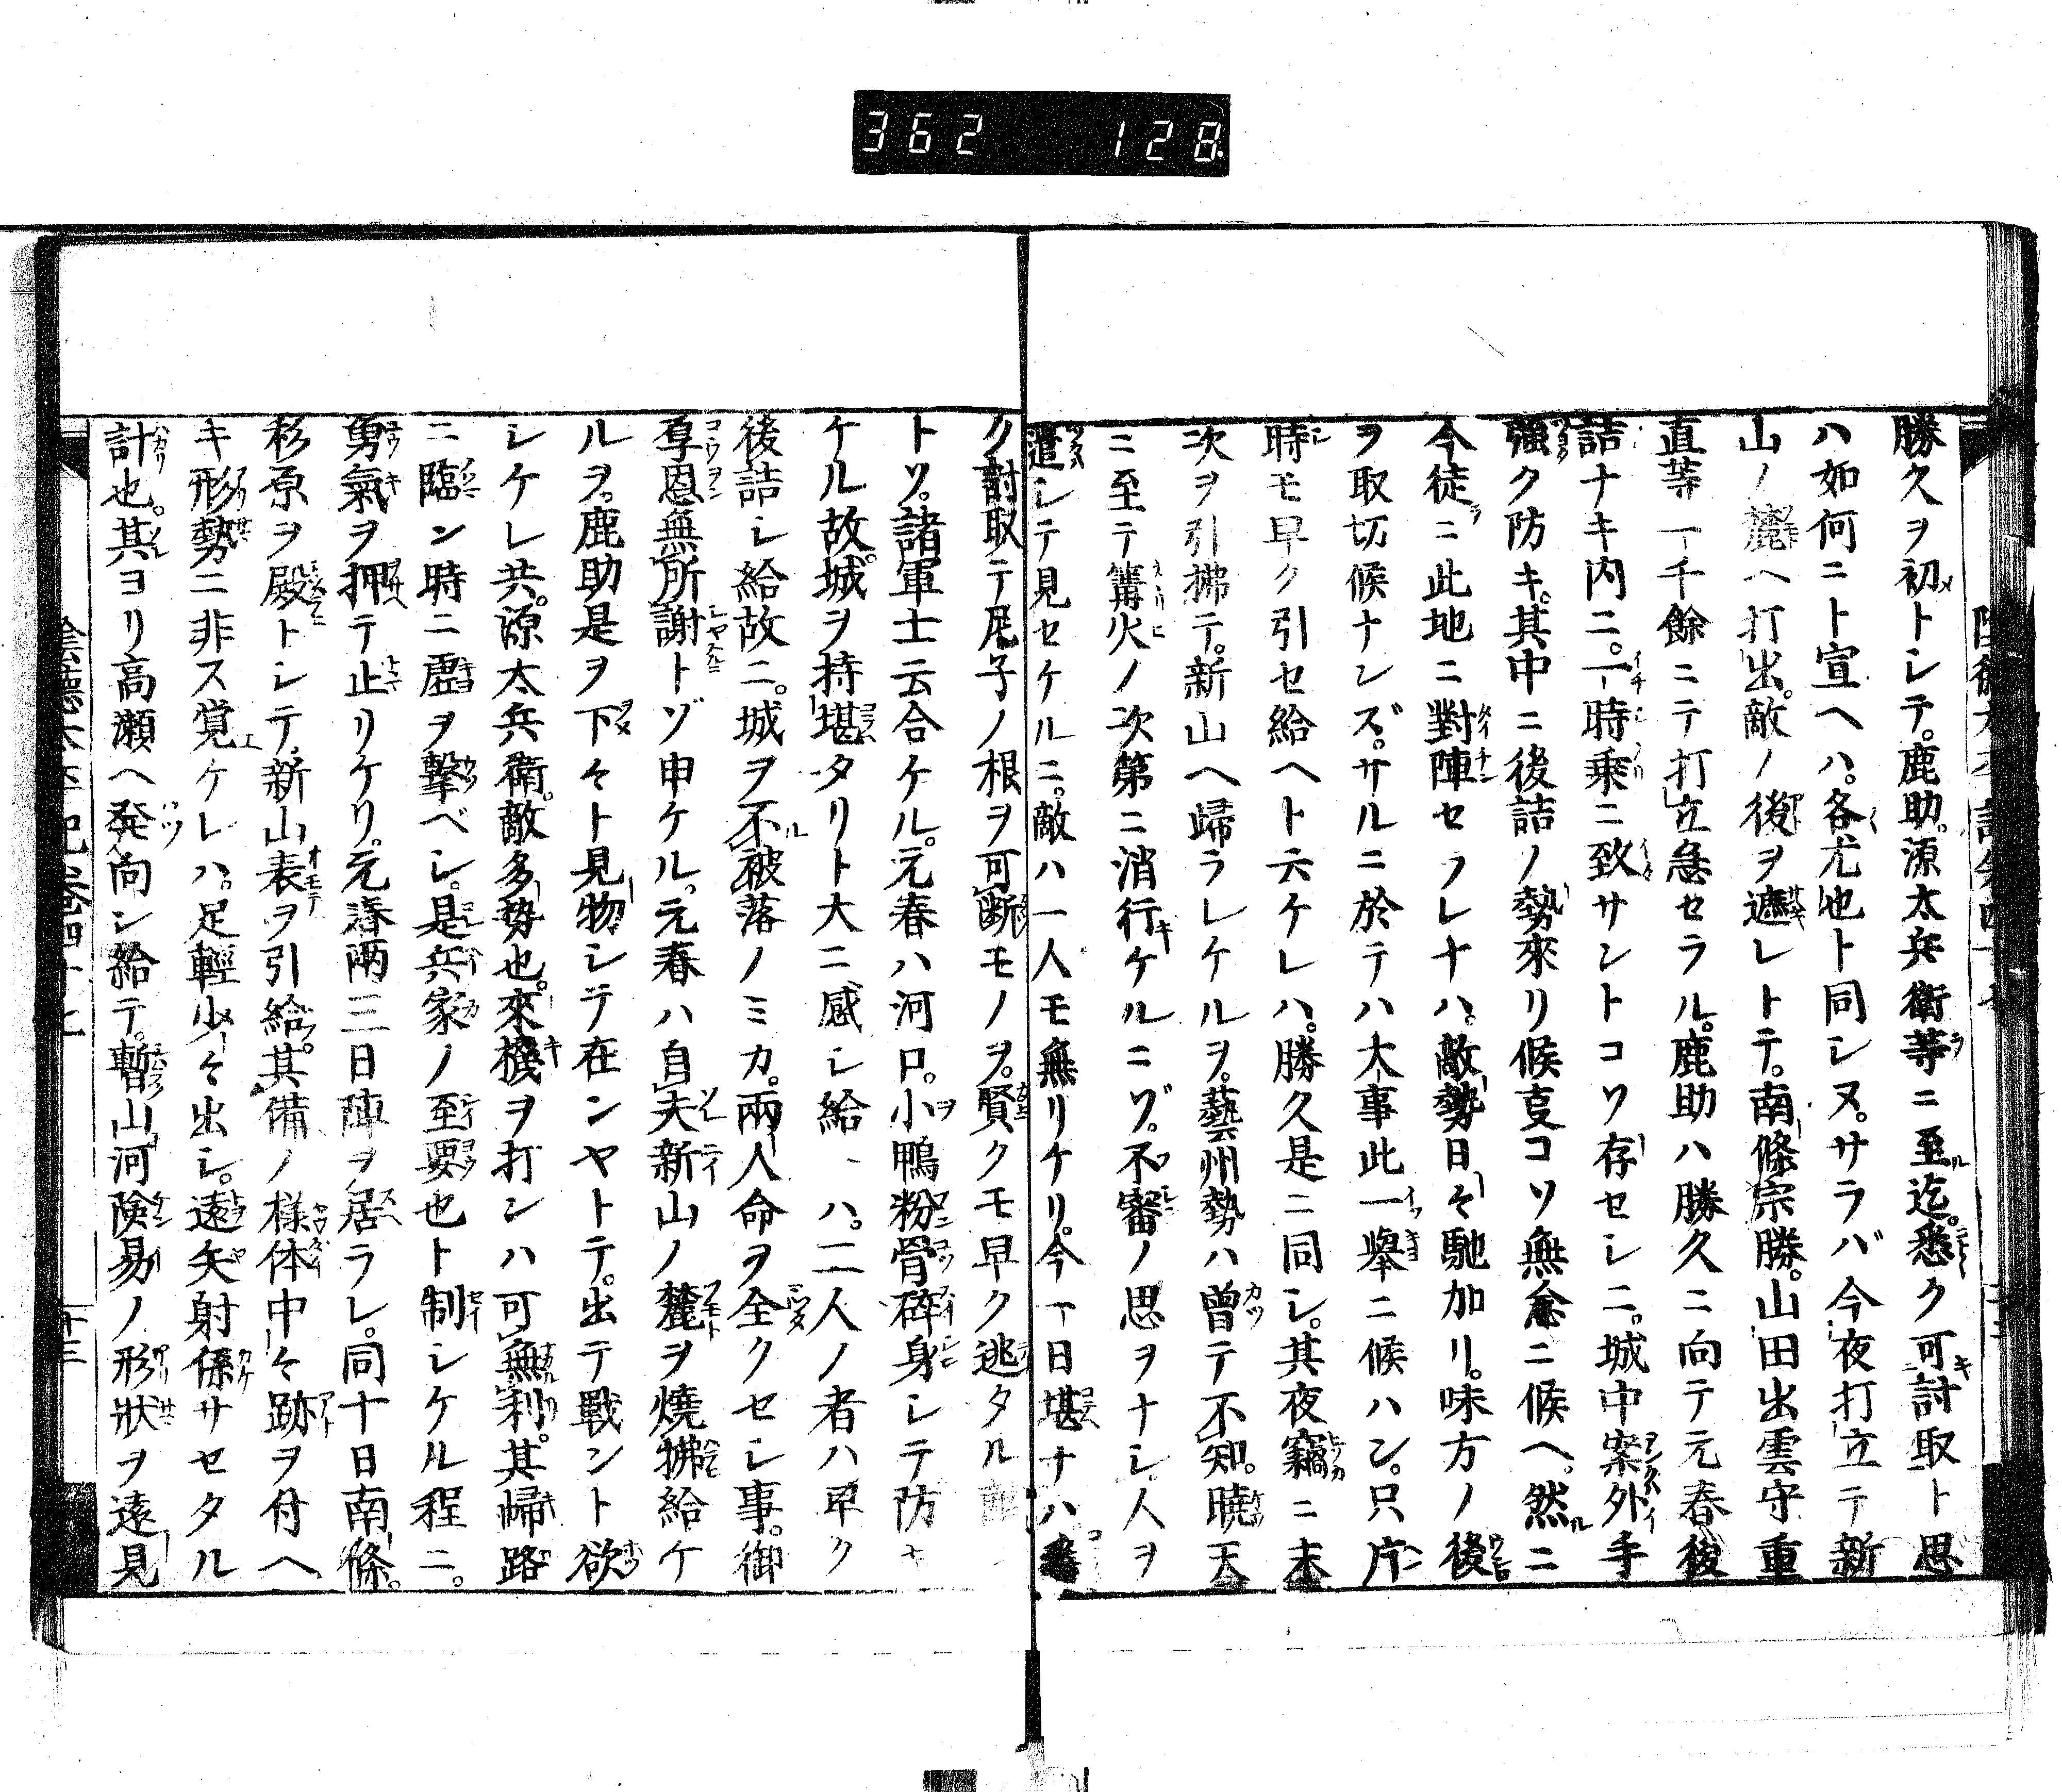 362 128
勝久ヲ初トシテ。鹿助。源太兵衛等ニ至迄。悉ク可討取ト思
ハ如何ニト宣ヘハ。各尤也ト同シヌ。サラバ今夜打立テ新
山ノ麓ヘ打出。敵ノ後ヲ遮レトテ。南條宗勝。山田出雲守重
直等一千餘ニテ打立急セラル。鹿助ハ勝久ニ向テ元春後
詰ナキ内ニ。一時乗ニ致サントコソ存セシニ。城中案外手
強ク防キ。其中ニ後詰ノ勢來リ候叓コソ無念ニ候ヘ。然ニ
今徒ニ此地ニ對陣セラレナハ。敵勢日々馳加リ。味方ノ後
ヲ取切候ナンズ。サルニ於テハ大事此一擧ニ候ハン。只片
時モ早ク引セ給ヘト云ケレハ。勝久是ニ同シ。其夜竊ニ末
次ヲ引拂テ。新山ヘ歸ラレケルヲ。藝州勢ハ曽テ不知。曉天
ニ至テ篝火ノ次第ニ消行ケルニゾ。不審ノ思ヲナシ。人ヲ
遣シテ見セケルニ。敵ハ一人モ無リケリ。今一日堪ナハ
ク討取テ尼子ノ根ヲ可断モノヲ。賢クモ早ク逃タル
トソ。諸軍士云合ケル。元春ハ河口。小鴨粉骨碎身シテ防キ
ケル故。城ヲ持堪タリト大ニ感シ給ヘハ。二人ノ者ハ早ク
後詰シ給故ニ。城ヲ不被落ノミカ。兩人命ヲ全クセシ事。御
厚恩無所謝トゾ申ケル。元春ハ自夫新山ノ麓ヲ燒拂給ケ
ルヲ。鹿助是ヲ下々ト見物シテ在ンヤトテ。出テ戰ント欲
シケレ共。源太兵衛。敵多勢也。來機ヲ打ンハ可無利。其帰路
ニ臨ン時ニ虚ヲ撃ベシ。是兵家ノ至要也ト制シケル程ニ。
勇氣ヲ押テ止リケリ。元春兩三日陣ヲ居ラレ。同十日南條。
杉原ヲ殿トシテ。新山表ヲ引給。其備ノ様体中々跡ヲ付ヘ
キ形勢ニ非ス覚ケレハ。足輕少々出シ。遠矢射係サセタル
計也。其ヨリ高瀬ヘ発向シ給テ。暫山河険易ノ形狀ヲ遠見
陰徳太平記巻四十七
十三